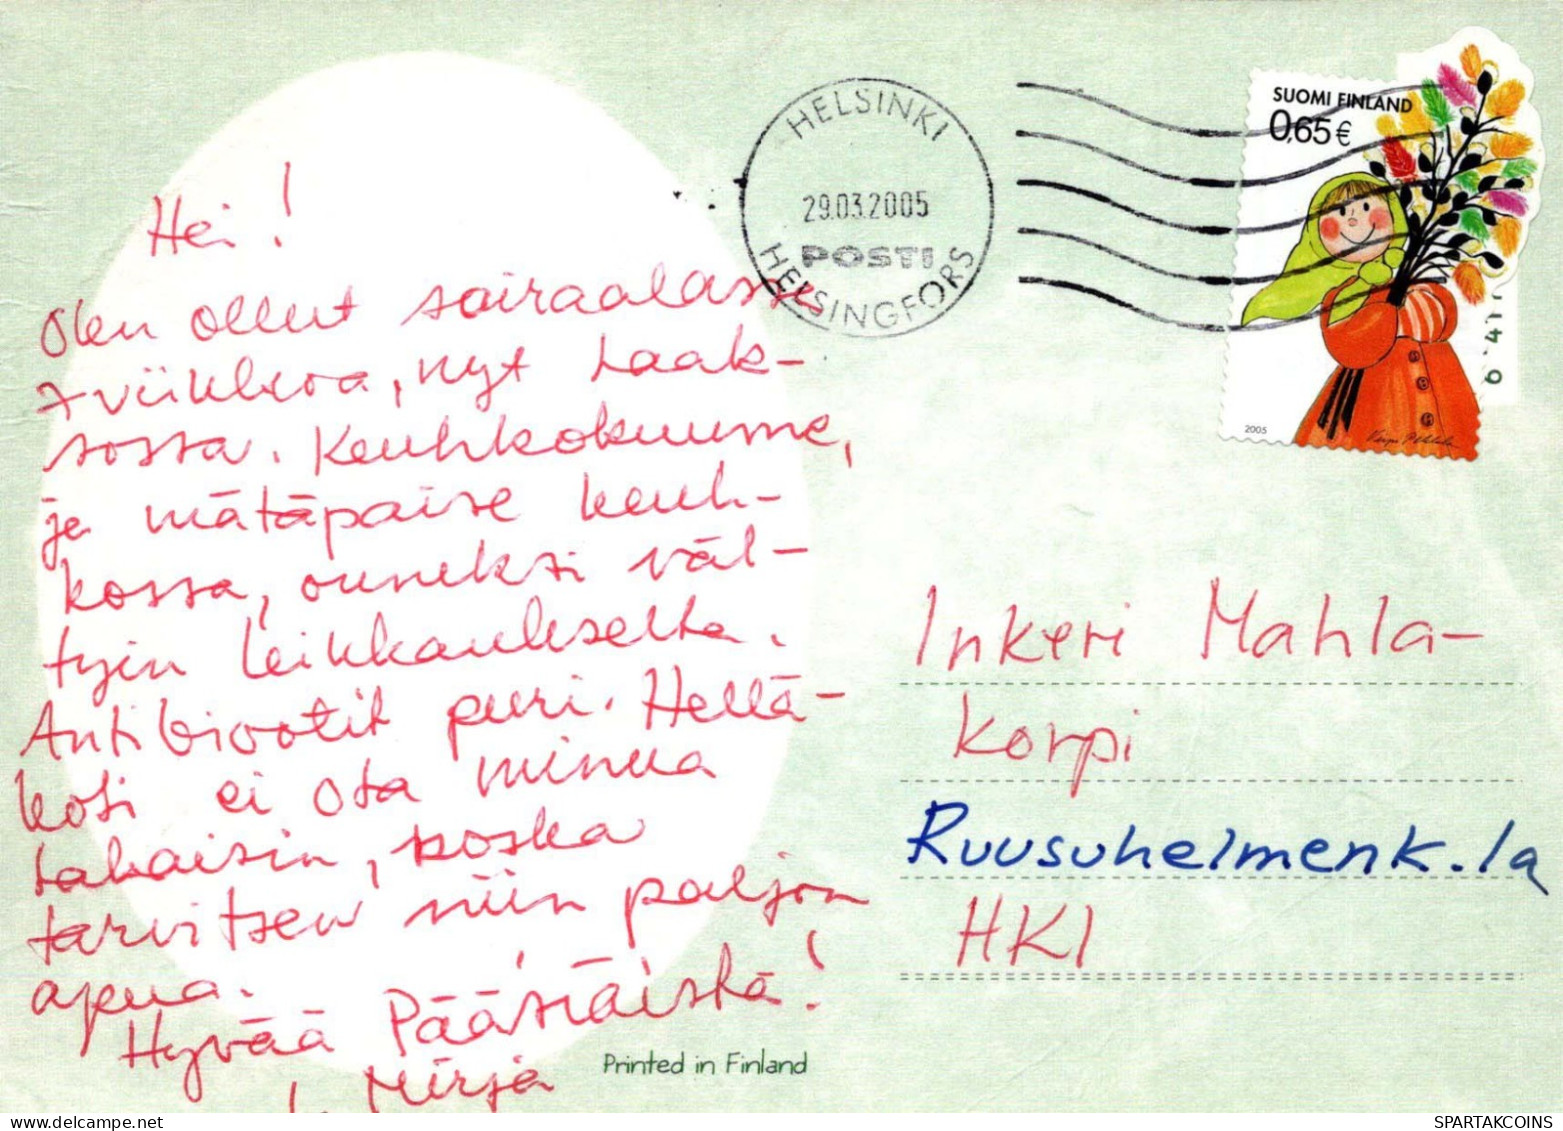 Hei!
Olen ollut sairaalassa
7 viikkoa, nyt Laak-
sossa. Keuhkokuume,
ja mätäpaise keuh-
kossa, onneksi väl-
tyin leikkaukselta.
Antibiootit puri. Hellä-
koti ei ota minua
takaisin, koska
tarvitsen niin paljon
apua.
Hyvää Pääsiäistä!
Mirja
Printed in Finland
HELSINKI
29.03.2005
POSTI
HELSINGFORS
SUOMI FINLAND
0,65€
2005
Inkeri Mahla-
korpi
Ruusuhelmenk. 1a
HKI
SPARTAKCOINS